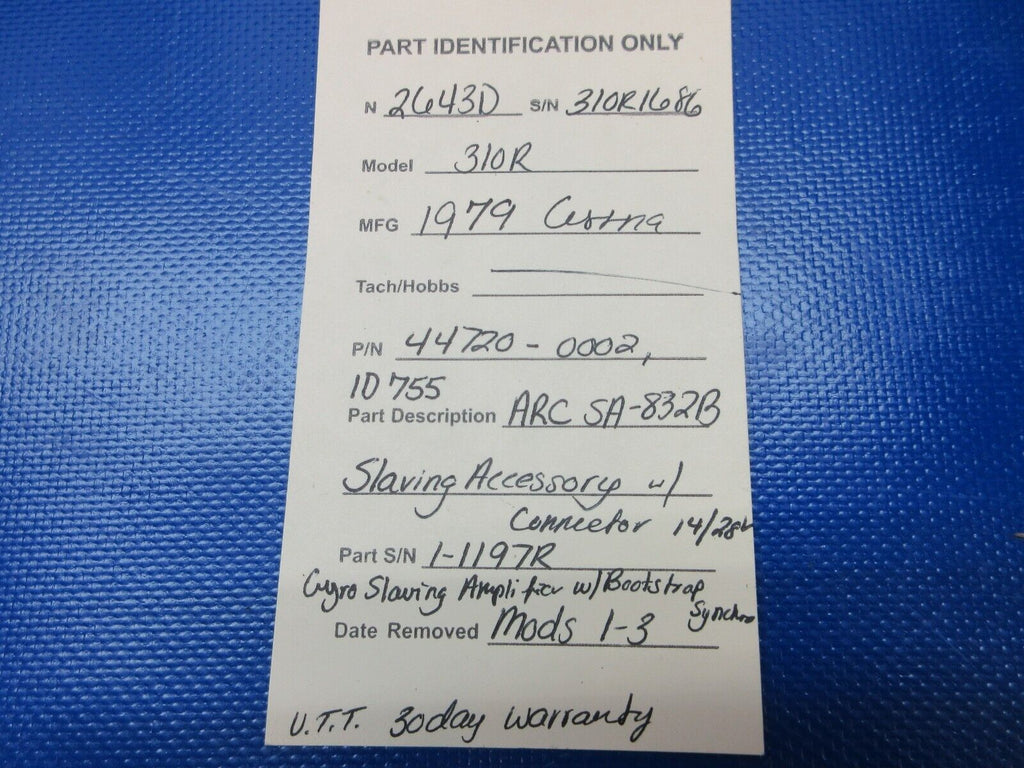 PART IDENTIFICATION ONLY
N 2643D S/N 310R1686
Model 310R
MFG 1979 Cessna
Tach/Hobbs
P/N 44720-0002,
ID 755
Part Description ARC SA-832B
Slaving Accessory w/
Connector 14/28v
Part S/N 1-1197R
Gyro Slaving Amplifier w/Bootstrap
Synchro
Date Removed Mods 1-3
U.T.T. 30day warranty